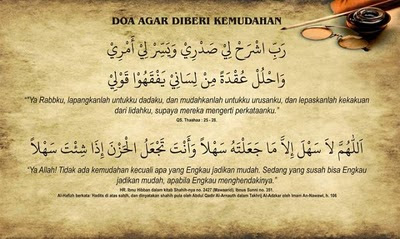 DOA AGAR DIBERI KEMUDAHAN
رَبِّ اشْرَحْ لِيْ صَدْرِيْ وَيَسِّرْ لِيْ أَمْرِيْ
وَاحْلُلْ عُقْدَةً مِنْ لِسَانِيْ يَفْقَهُوْا قَوْلِيْ
"Ya Rabbku, lapangkanlah untukku dadaku, dan mudahkanlah untukku urusanku, dan lepaskanlah kekakuan
dari lidahku, supaya mereka mengerti perkataanku."
QS. Thaahaa : 25 - 28.
اَللَّهُمَّ لاَ سَهْلَ إِلاَّ مَا جَعَلْتَهُ سَهْلاً وَأَنْتَ تَجْعَلُ الْحَزْنَ إِذَا شِئْتَ سَهْلاً
"Ya Allah! Tidak ada kemudahan kecuali apa yang Engkau jadikan mudah. Sedang yang susah bisa Engkau
jadikan mudah, apabila Engkau menghendakinya."
HR. Ibnu Hibban dalam kitab Shahih-nya no. 2427 (Mawaarid), Ibnus Sunni no. 351.
Al-Hafizh berkata: Hadits di atas sahih, dan dinyatakan shahih pula oleh Abdul Qadir Al-Arnauth dalam Takhrij Al-Adzkar oleh Imam An-Nawawi, h. 106